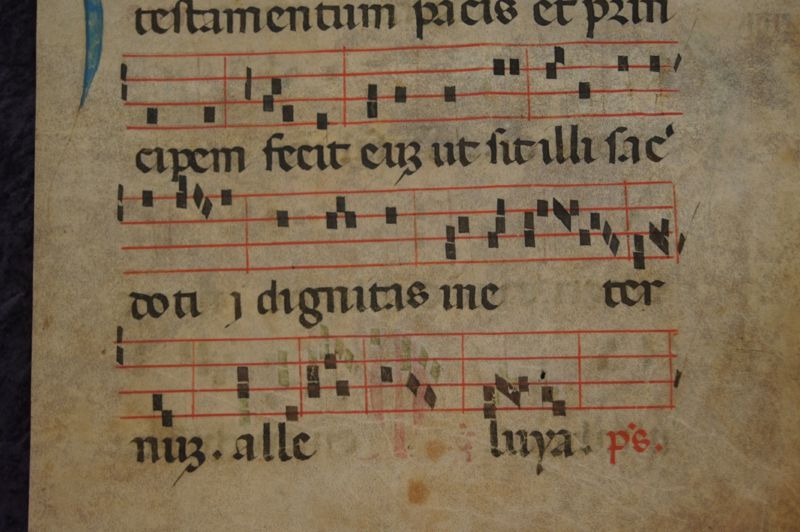 testamentum pacis et prin
cipem fecit euz ut sit illi sac
doti j dignitas in e ter
nuz . alle luya . ps.